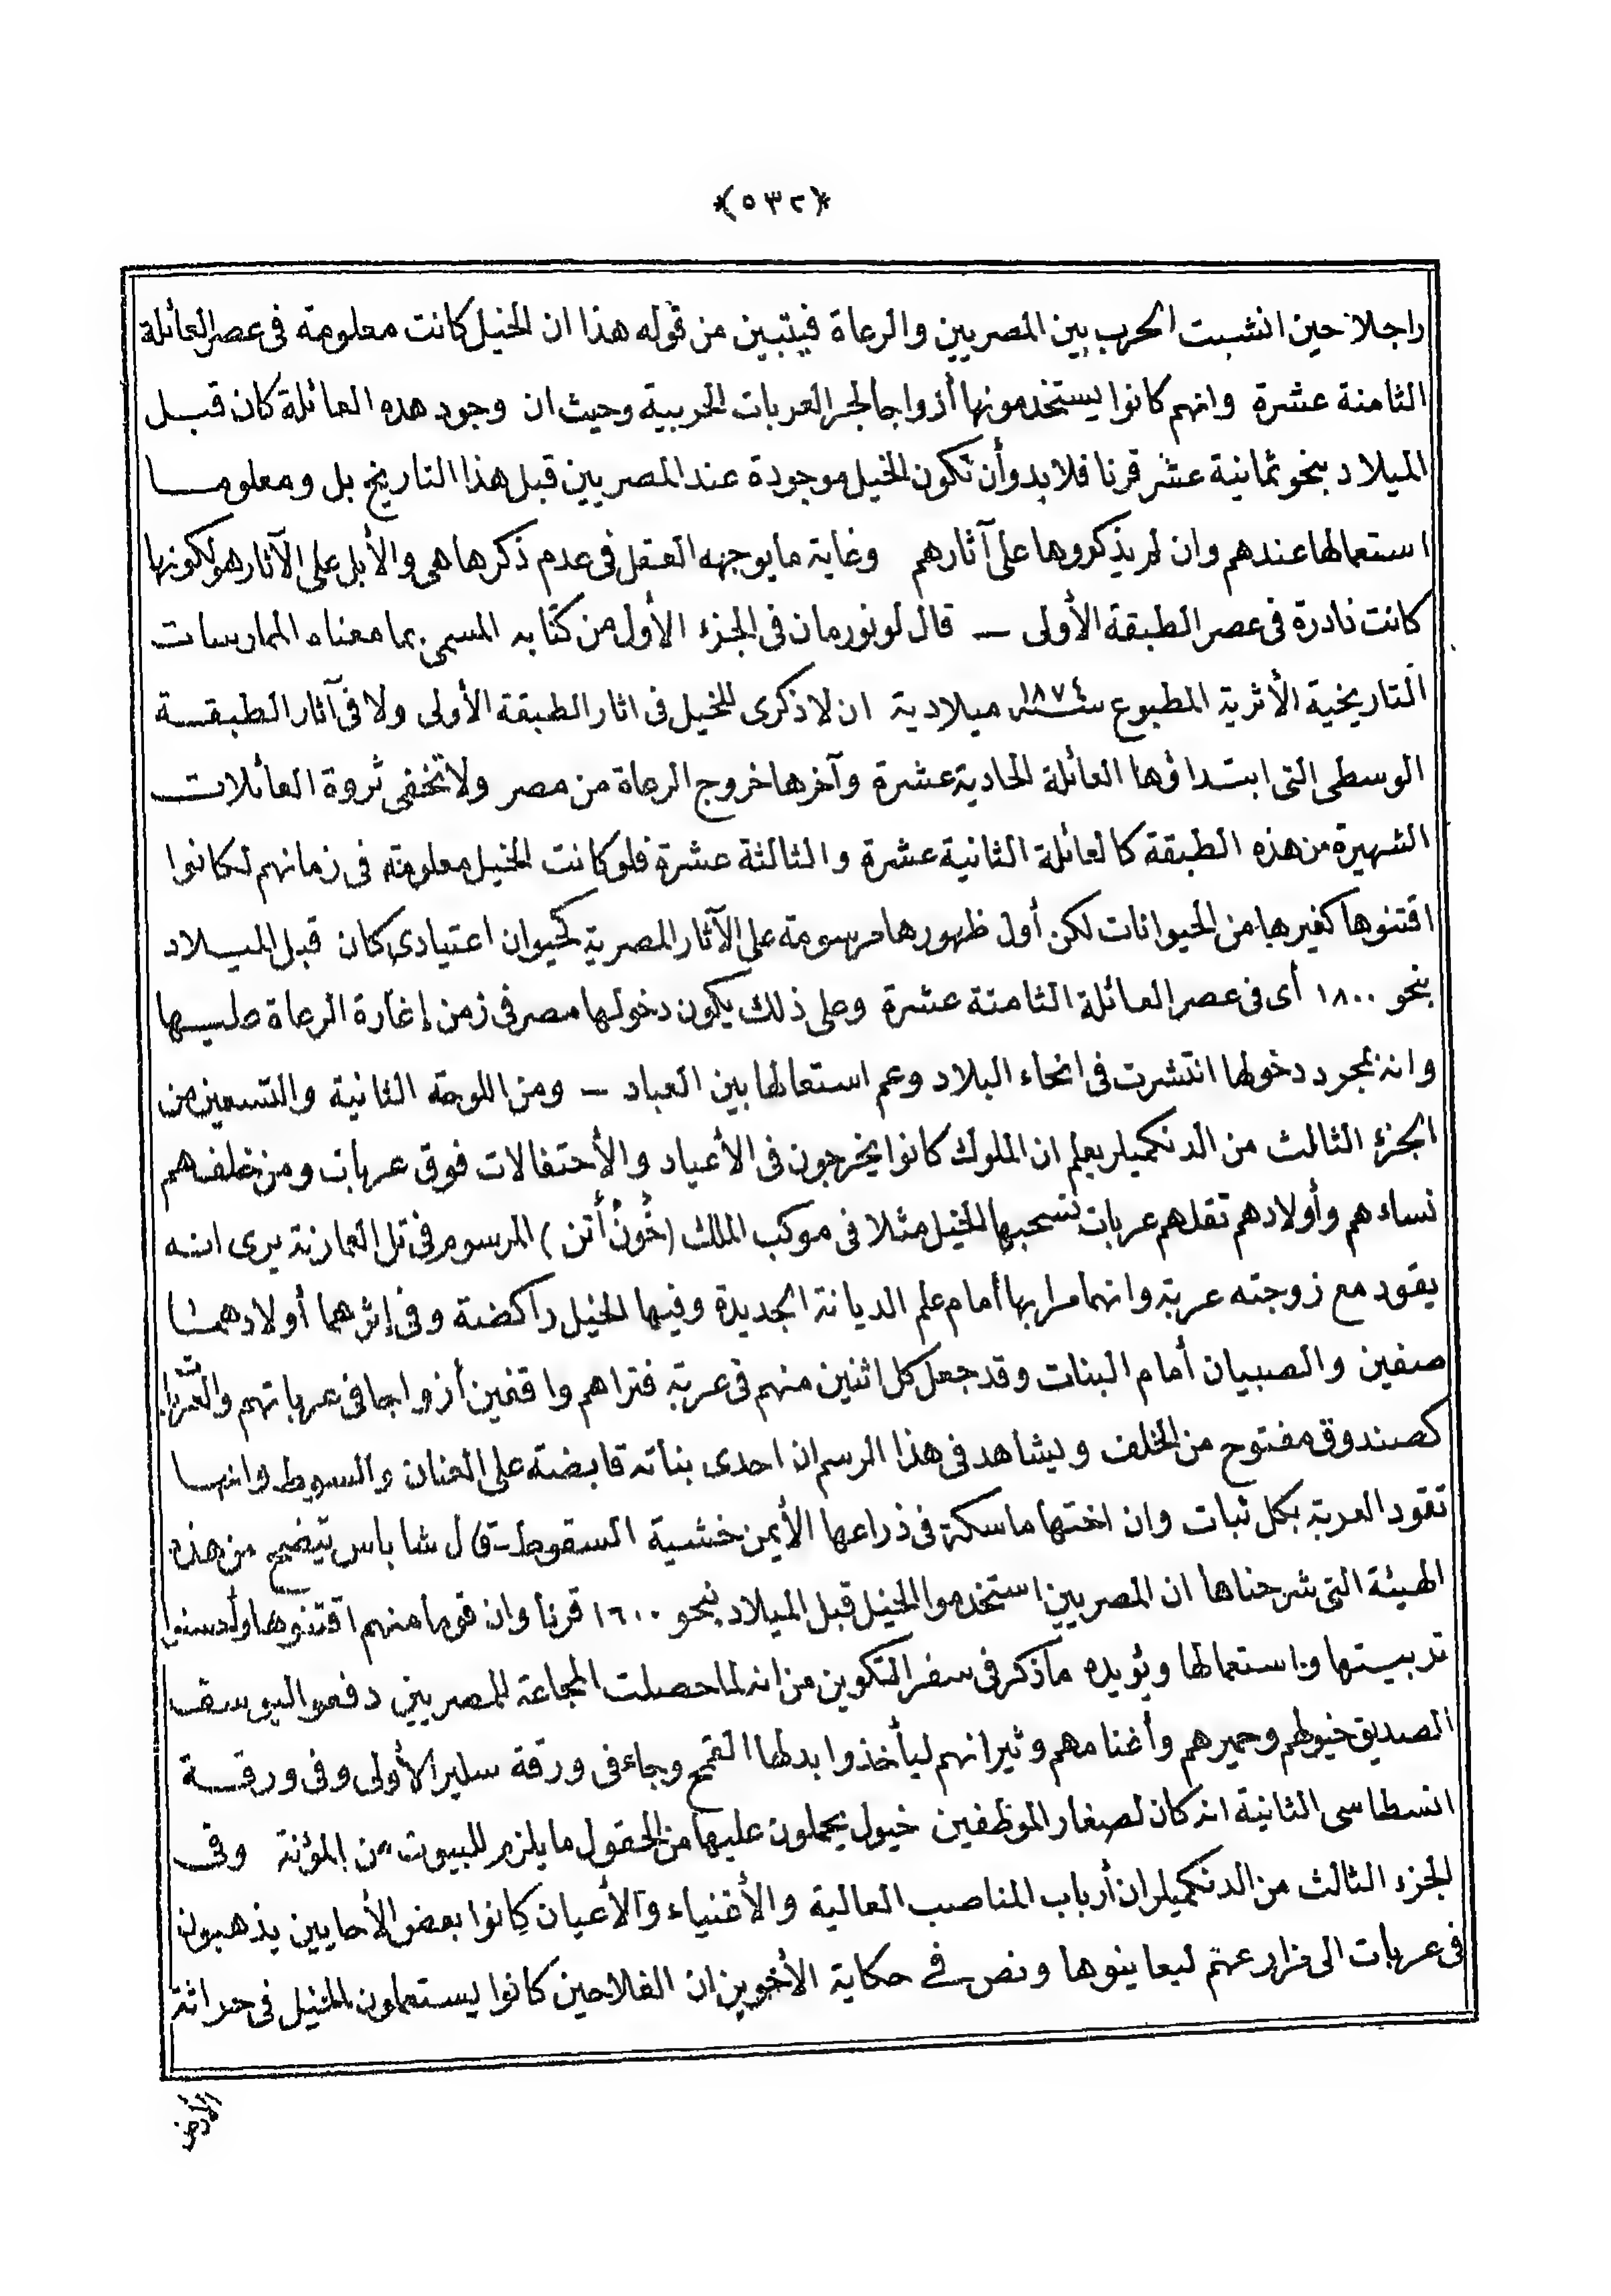 ﴿٥٣٢﴾
راجلا حين انشبت الحرب بين المصريين والرعاة فيتبين من قوله هذا ان الخيل كانت معلومة فى عصر العائلة
الثامنة عشرة وانهم كانوا يستخدمونها أزواجا لجر العربات الحربية وحيث ان وجود هذه العائلة كان قبل
الميلاد بنحو ثمانية عشر قرنا فلا بد وأن تكون الخيل موجودة عند المصريين قبل هذا التاريخ بل ومعلوما
استعمالها عندهم وان لم يذكروها على آثارهم وغاية ما يوجهه العقل فى عدم ذكرها هى والأبل على الآثار هو لكونها
كانت نادرة فى عصر الطبقة الأولى — قال لونورمان فى الجزء الأول من كتابه المسمى بما معناه الممارسات
التاريخية الأثرية المطبوع سنة ١٨٧٤ ميلادية ان لا ذكرى للخيل فى اثار الطبقة الأولى ولا فى آثار الطبقة
الوسطى التى ابتداؤها العائلة الحادية عشرة وآخرها خروج الرعاة من مصر ولا تخفى ثروة العائلات
الشهيرة من هذه الطبقة كالعائلة الثانية عشرة والثالثة عشرة فلو كانت الخيل معلومة فى زمانهم لكانوا
اقتنوها كغيرها من الحيوانات لكن أول ظهورها مرسومة على الآثار المصرية كحيوان اعتيادى كان قبل الميلاد
بنحو ١٨٠٠ أى فى عصر العائلة الثامنة عشرة وعلى ذلك يكون دخولها مصر فى زمن إغارة الرعاة عليها
وانه بمجرد دخولها انتشرت فى انحاء البلاد وعم استعمالها بين العباد — ومن اللوحة الثانية والتسعين من
الجزء الثالث من الدنكميلر يعلم ان الملوك كانوا يخرجون فى الأعياد والأحتفالات فوق عربات ومن خلفهم
نساءهم وأولادهم تقلهم عربات تسحبها الخيل مثلا فى موكب الملك (خُونْ أَتن) المرسوم فى تل العمارنة يرى انه
يقود مع زوجته عربة وانهما مرا بها أمام علم الديانة الجديدة وفيها الخيل راكضة وفى إثرهما أولادهما
صفين والصبيان أمام البنات وقد جعل كل اثنين منهم فى عربة فتراهم واقفين أزواجا فى عرباتهم والعربات
كصندوق مفتوح من الخلف ويشاهد فى هذا الرسم ان احدى بناته قابضة على العنان والسوط وانها
تقود العربة بكل ثبات وان اختها ماسكة فى ذراعها الأيمن خشية السقوط - قال شاباس يتضح من هذه
الهيئة التى شرحناها ان المصريين استخدموا الخيل قبل الميلاد بنحو ١٦٠٠ قرنا وان قوما منهم اقتنوها وأحسنوا
تربيتها واستعمالها ويؤيده ماذكر فى سفر التكوين من انه لما حصلت المجاعة للمصريين دفعوا ليوسف
الصديق خيولهم وحميرهم وأغنامهم وثيرانهم ليأخذوا بدلها القمح وجاء فى ورقة سلير الأولى وفى ورقة
انسطاسى الثانية انه كان لصغار الموظفين خيول يحملون عليها من الحقول ما يلزم للبيوت من المؤنة وفى
الجزء الثالث من الدنكميلر ان أرباب المناصب العالية والأغنياء والأعيان كانوا بعض الأحايين يذهبون
فى عربات الى مزارعهم ليعاينوها ونص فى حكاية الأخوين ان الفلاحين كانوا يستعملون الخيل فى حراثة
الأرض